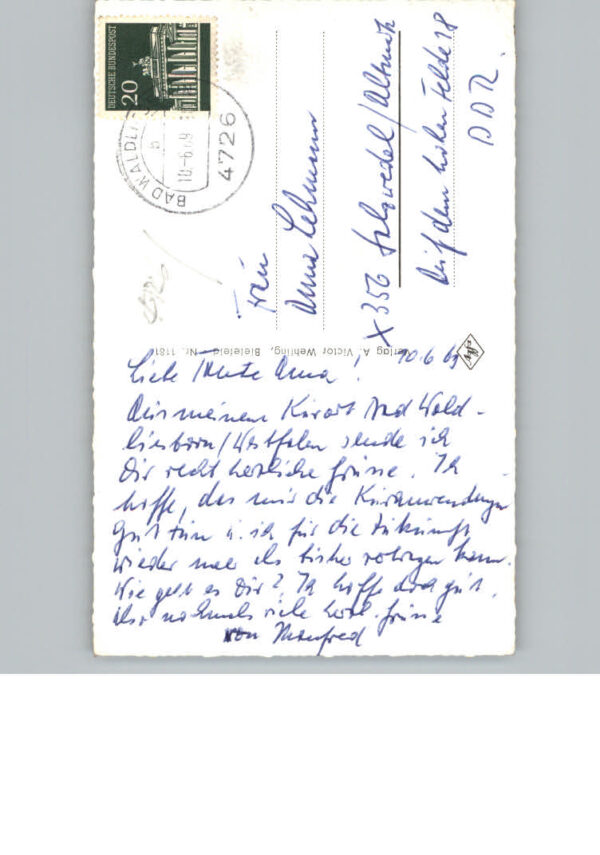 DEUTSCHE BUNDESPOST
20
BAD WALDLI
10.-6.69
4726
Frau
Anna Lehmann
X 356 Salzwedel/Altmark
Auf dem hohen Felde 18
DDR
Verlag A. Victor Wehling, Bielefeld - Nr. 1181
Agfa
10.6.69
Liebe Tante Anna!
Aus meinem Kurort Bad Wald-
liesborn/Westfalen sende ich
Dir recht herzliche Grüsse. Ich
hoffe, das mir die Kuranwendungen
gut tun u. ich für die Zukunft
wieder mehr als bisher kann.
Wie geht es Dir? Ich hoffe doch gut.
Also nochmals viele herzl. Grüsse
von Manfred